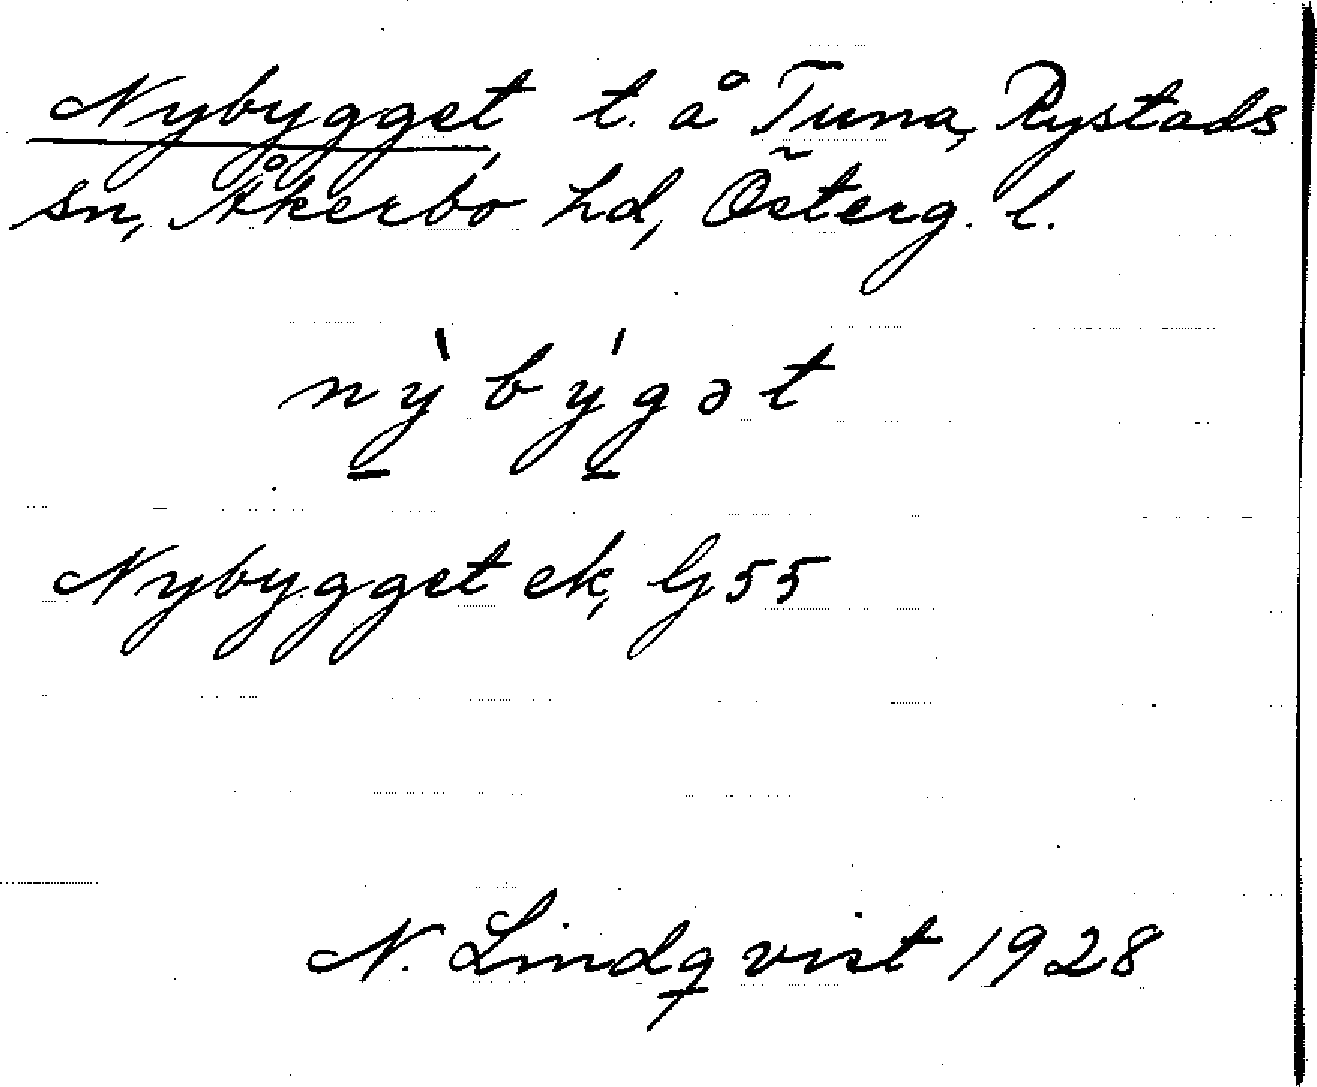 Nybygget t. å Tuna, Rystads
sn, Åkerbo hd, Österg. l.
nỳbýgət
Nybygget ek, G 55
N. Lindqvist 1928